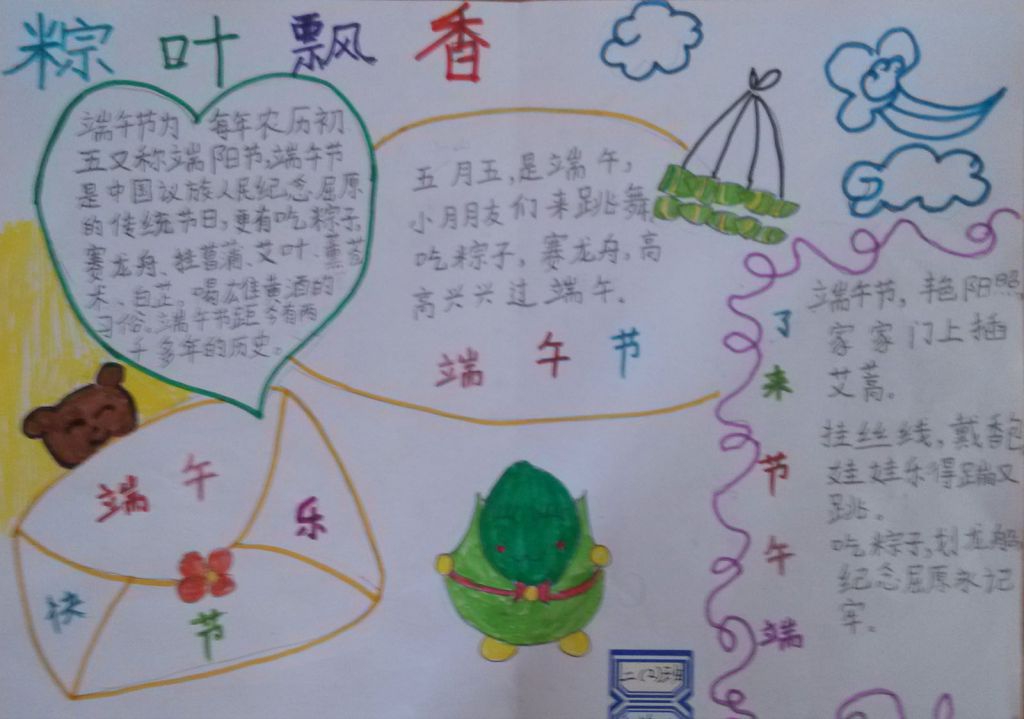 粽叶飘香
端午节为 每年农历初
五又称端阳节,端午节
是中国议族人民纪念屈原
的传统节日,更有吃粽子,
赛龙舟、挂菖蒲、艾叶、薰苍
术、白芷。喝雄黄酒的
习俗。端午节距今有两
千多年的历史。
五月五,是端午,
小月月友们来跳舞,
吃粽子,赛龙舟,高
高兴兴过端午。
端午节
了来节午端
端午节,艳阳照,
家家门上插
艾蒿。
挂丝线,戴香包
娃娃乐得蹦又
跳。
吃粽子,划龙船
纪念屈原永记
牢。
端午
乐
快
节
二(2)班